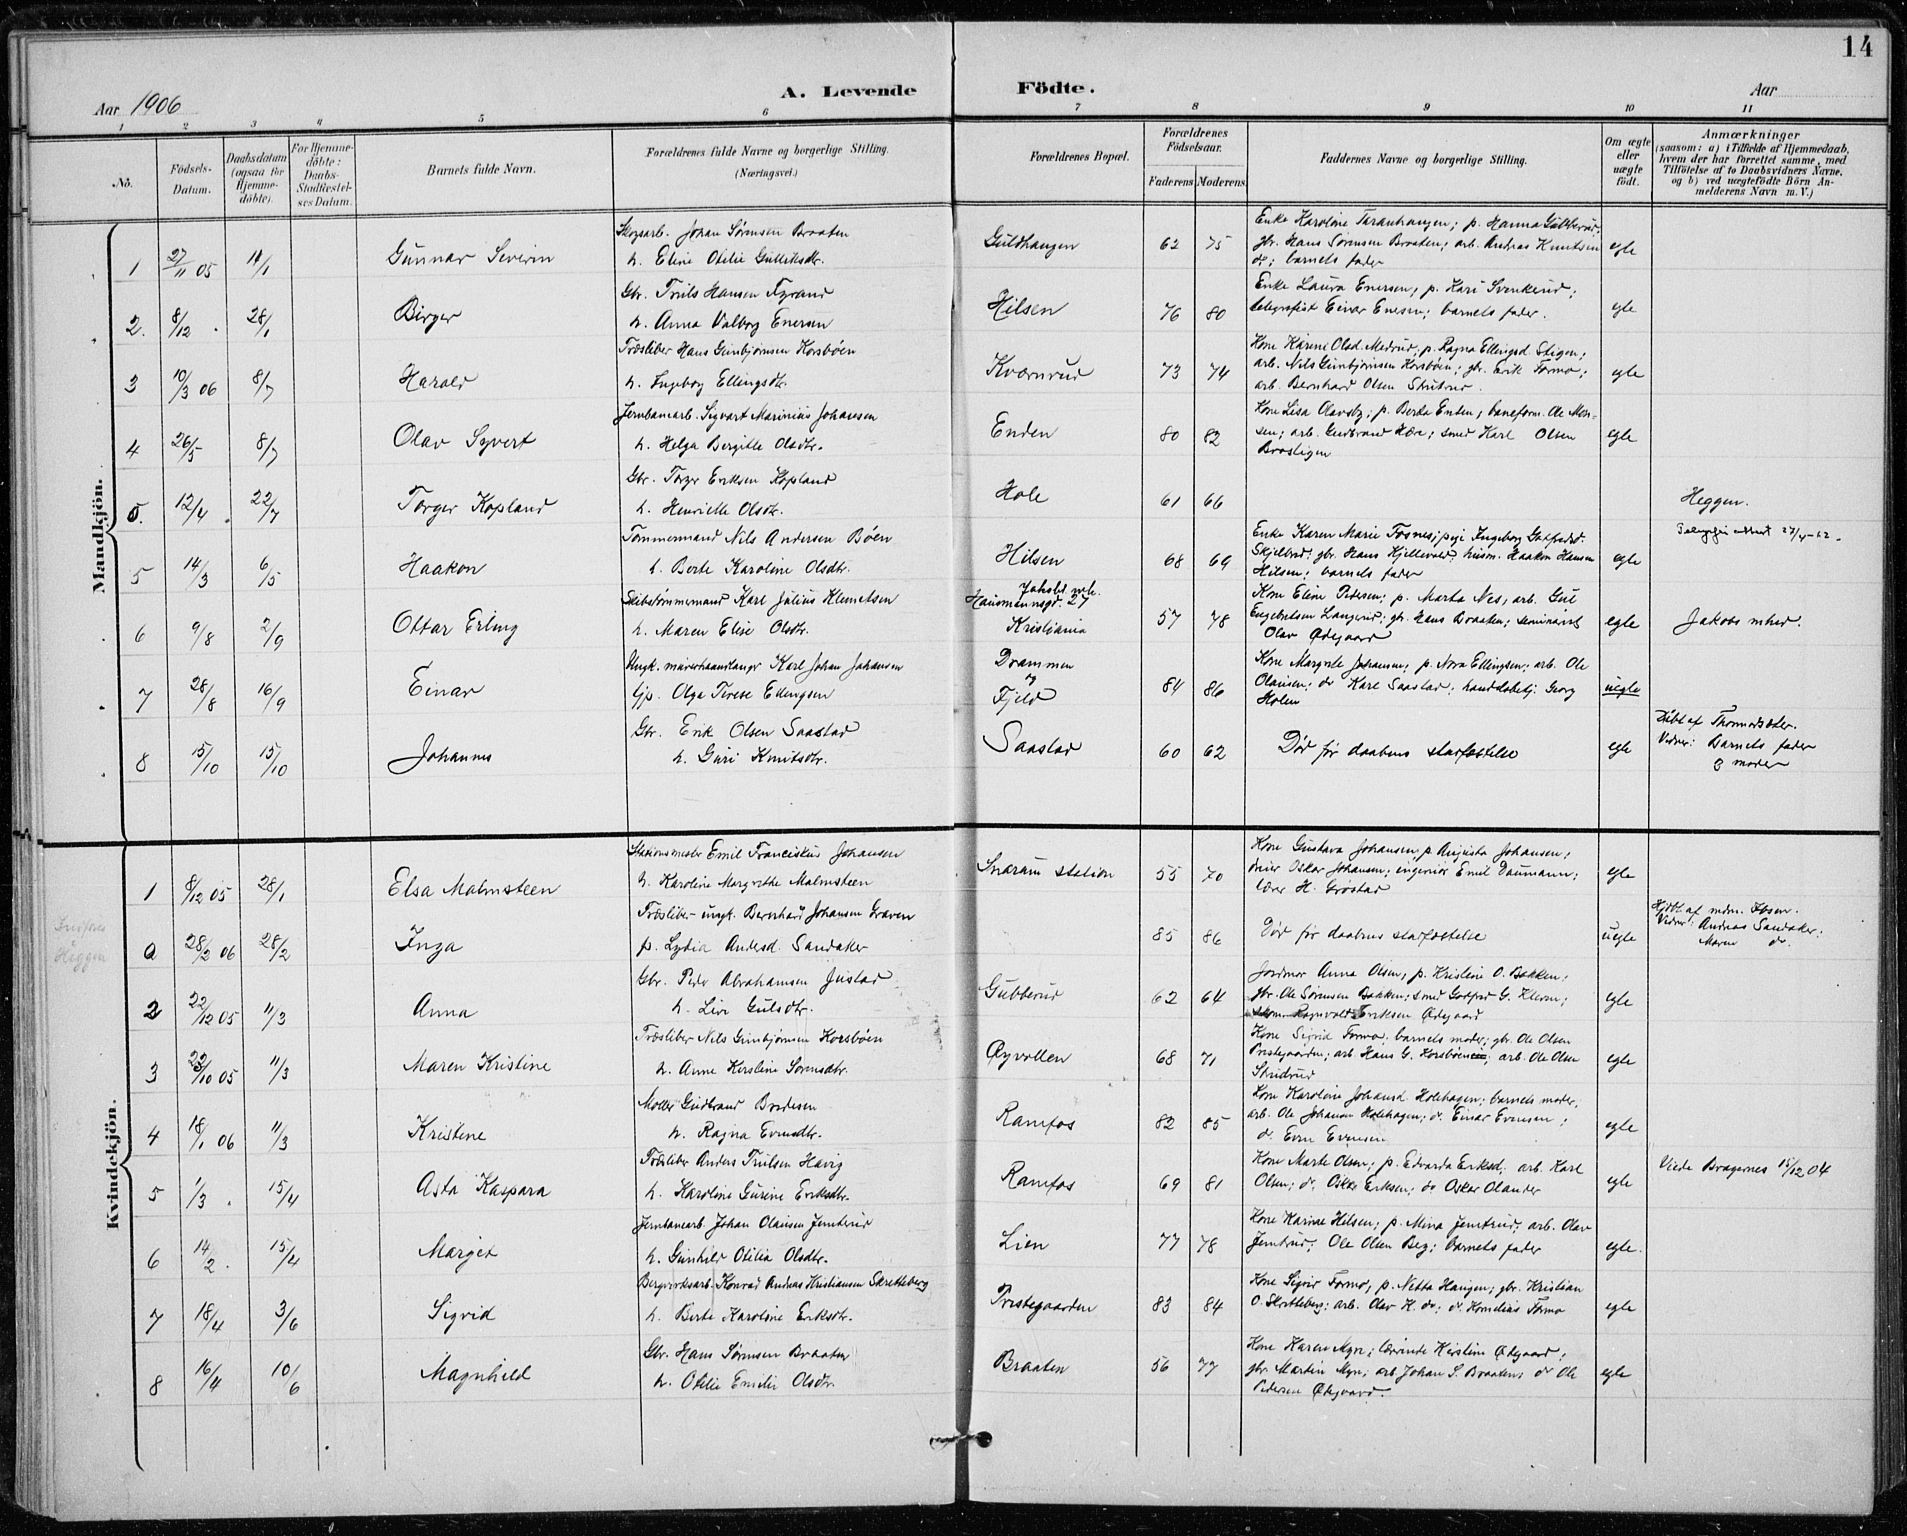 14
Aar 1906
A. Levende Födte.
Aar
1 2 3 4 5 6 7 8 9 10 11
No.
Födsels-Datum.
Daabsdatum (ogsaa for Hjemme-döbte).
For Hjemme-döbte: Daabs-Stadfæstel-ses Datum.
Barnets fulde Navn.
Forældrenes fulde Navne og borgerlige Stilling. (Næringsvei.)
Forældrenes Bopæl.
Forældrenes Födselsaar.
Faderens Moderens
Faddernes Navne og borgerlige Stilling.
Om ægte eller uægte födt.
Anmærkninger (saasom: a) i Tilfælde af Hjemmedaab, hvem der har forrettet samme, med Tilföielse af to Daabsvidners Navne, og b) ved uægtefödte Börn An-melderens Navn m. V.)
Mandkjön.
1 27/11 05 Gunnar Severin
Skogsarb. Johan Sørensen Braaten
h. Eline Otilie
Guldhaugen 62 75
Enke Karoline; p. Hanna Gubberud;
gbr. Hans Sørensen Braaten; arb. Andreas Knutsen
do; barnets fader
egte
2. 8/12 . 28/1 Birger
Gbr. Truls Hansen Fyrand
h. Anna Valborg Enersen
Hilsen 76 80
Enke Laura Enersen; p. Kari Svenkerud;
telegrafist Einar Enersen; barnets fader.
egte
3 10/3 06 8/7 Harald
Træsliber Hans Gunbjørnsen Korsbøen
h. Ingeborg Ellingsdtr.
Kværnrud 73 74
Kone Karine Olsd. Medrud, p. Ragna Ellingsd. Stigen;
arb. Nils Gunbjørnsen Korsbøen; gbr. Erik Formo;
arb. Bernhard Olsen Skridrud.
egte
4 26/5 8/7 Olav Syvert
Jernbanearb. Sigvart Marinius Johansen
h. Helga Bergitte Olsdtr.
Enden 80 82
Kone Lisa Olavsby; p. Berta Enden; baneform. Ole Mon-
sen; arb. Gudbrand; smed Karl Olsen
Brastigen
egte
5. 12/4 . 22/7 Torger Kopland
Gbr. Torger Eriksen Kopland
h. Henriette Olsdtr.
Hole 61 66
Heggen.
5 14/3 6/5 Haakon
Tømmermand Nils Andersen Bøen
h. Berte Karoline Olsdtr.
Hilsen 68 69
Enke Karen Marie Fosnes; pige Ingeborg
Skjelbred; gbr. Hans Hjellevold; husm. Haakon Hansen
Hilsen; barnets fader
egte
27/4-62.
6 9/8 2/9 Ottar Erling
Skibstømmermand Karl Julius Klemetsen
h. Maren Elise Olsdtr.
Hausmannsgd. 27
Kristiania 57 78
Kone Eline Pedersen; p. Marta Nes; arb. Gul
Engebretsen Langerud; gbr. Hans Braaten; seminarist
Olav Ødegaard
egte
Jakobs mhed.
7 28/8 16/9 Einar
Ungk. murerhaandlanger Karl Johan Johansen
Olga Terese Ellingsen
Drammen
og
Fjeld 84 86
Kone Margrete Johansen; p. Nora Ellingsen; arb. Ole
Olausen; do Karl Saastad; handelsbetj. Georg
Holen
uegte
8 15/10 15/10 Johannes
Gbr. Erik Olsen Saastad
h. Guri Knutsdtr.
Saastad 60 62
Død før daabens stadfæstelse
egte
Døbt af Thormodsæter.
Vidner: Barnets fader
& moder
Kvindekjön.
1 8/12 05 28/1 Elsa Malmsteen
Stationsmester Emil Franciskus Johansen
h. Karoline Margrethe Malmsteen
Snarum station 55 70
Kone Gustava Johansen, p. Augusta Johansen;
Oskar Johansen; ingeniør Emil Daumann;
lærer H. Grøstad
egte
Indføres
i Heggen
a 28/2 06 28/2 Inga
Træsliber ungk. Bernhard Johansen Graven
p. Lydia Andersd. Sandaker
85 86
Død før daabens stadfæstelse
uegte
Hjdøbt af mdm. Ibsen.
Vidner: Andreas Sandaker;
Maren do.
2 22/12 05 11/3 Anna
Gbr. Peder Abrahamsen Justad
h. Live Gulsdtr.
Gubberud 62 64
Jordmor Anna Olsen; p. Kristine O. Bakken;
gbr. Ole Sørensen Bakken; smed G. Kleven;
Ragnvald Eriksen Ødegaard
egte
3 22/10 05 11/3 Maren Kristine
Træsliber Nils Gunbjørnsen Korsbøen
h. Anne Kirstine Sørensdtr.
Øyvollen 68 71
Kone Sigrid Formo; barnets moder; gbr. Ole Olsen
Prestegaarden; arb. Hans G. Korsbøen; arb. Ole Olsen
Skridrud
egte
4 18/1 06 11/3 Kristine
Møller Gudbrand Bredesen
h. Ragna Evensdtr.
Ramfos 82 85
Kone Karoline Johansd. Holehagen; barnets moder;
arb. Ole Johansen Holehagen; do. Einar Evensen;
do. Even Evensen
egte
5 1/3 . 15/4 Asta Kaspara
Træsliber Anders Trulsen Havig
h. Karoline Gurine Eriksdtr.
Ramfos 69 81
Kone Marte Olsen; p. Edvarda Eriksd; arb. Karl
Olsen; do. Oskar Eriksen; do Oskar Olander
egte
Viede Bragernes 15/12 04
6 14/2 . 15/4 Margit
Jernbanearb. Johan Olausen Jemtrud
h. Gunhild Otilia Olsdtr.
Lien 77 78
Kone Karine Hilsen; p. Mina Jemtrud; arb. Olav
Jemtrud; Ole Olsen Berg; barnets fader
egte.
7 18/4 3/6 Sigrid
Bergverksarb. Konrad Andreas Kristiansen Skretteberg
h. Berte Karoline Eriksdtr.
Prestegaarden 83 84
Kone Sigrid Formo; p. Netta Haugen; gbr. Kristian
O. Skretteberg; arb. Olav K. do; do. Kornelius Formo
egte
8 16/4 10/6 Magnhild
Gbr. Hans Sørensen Braaten
h. Otilie Emilie Olsdtr.
Braaten 56 77
Kone Karen Myre; lærerinde Kirstine Ødegaard;
gbr. Martin Myre; arb. Johan S. Braaten; do Ole
Pedersen Ødegaard.
egte